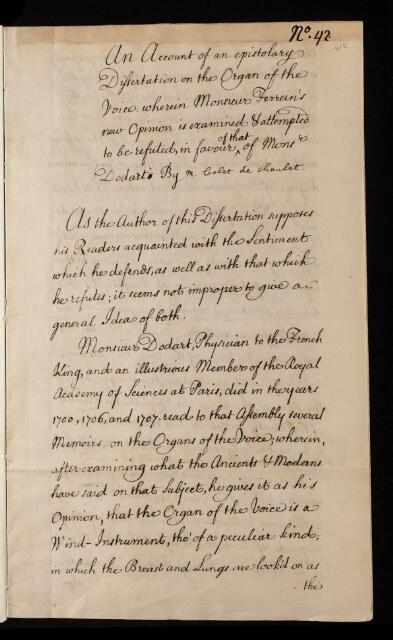 No. 42
An Account of an epistolary
Dissertation on the Organ of the
Voice: wherein Monsieur Ferrein's
new Opinion is examined & attempted
to be refuted, in favour ^that of Monsr
Dodart. By M. Colet de Chaulet.
As the Author of this Dissertation supposes
his Readers acquainted with the Sentiment
which he defends, as well as with that which
he refutes; it seems not improper to give a
general Idea of both.
Monsieur Dodart, Physician to the French
King, and an illustrious Member of the Royal
Academy of Sciences at Paris, did in the years
1700, 1706, and 1707. read to that Assembly several
Memoirs on the Organs of the Voice; wherein,
after examining what the Ancients & Moderns
have said on that Subject, he gives it as his
Opinion, that the Organ of the Voice is a
Wind-Instrument, tho' of a peculiar kind;
in which the Breast and Lungs are look'd on as
the